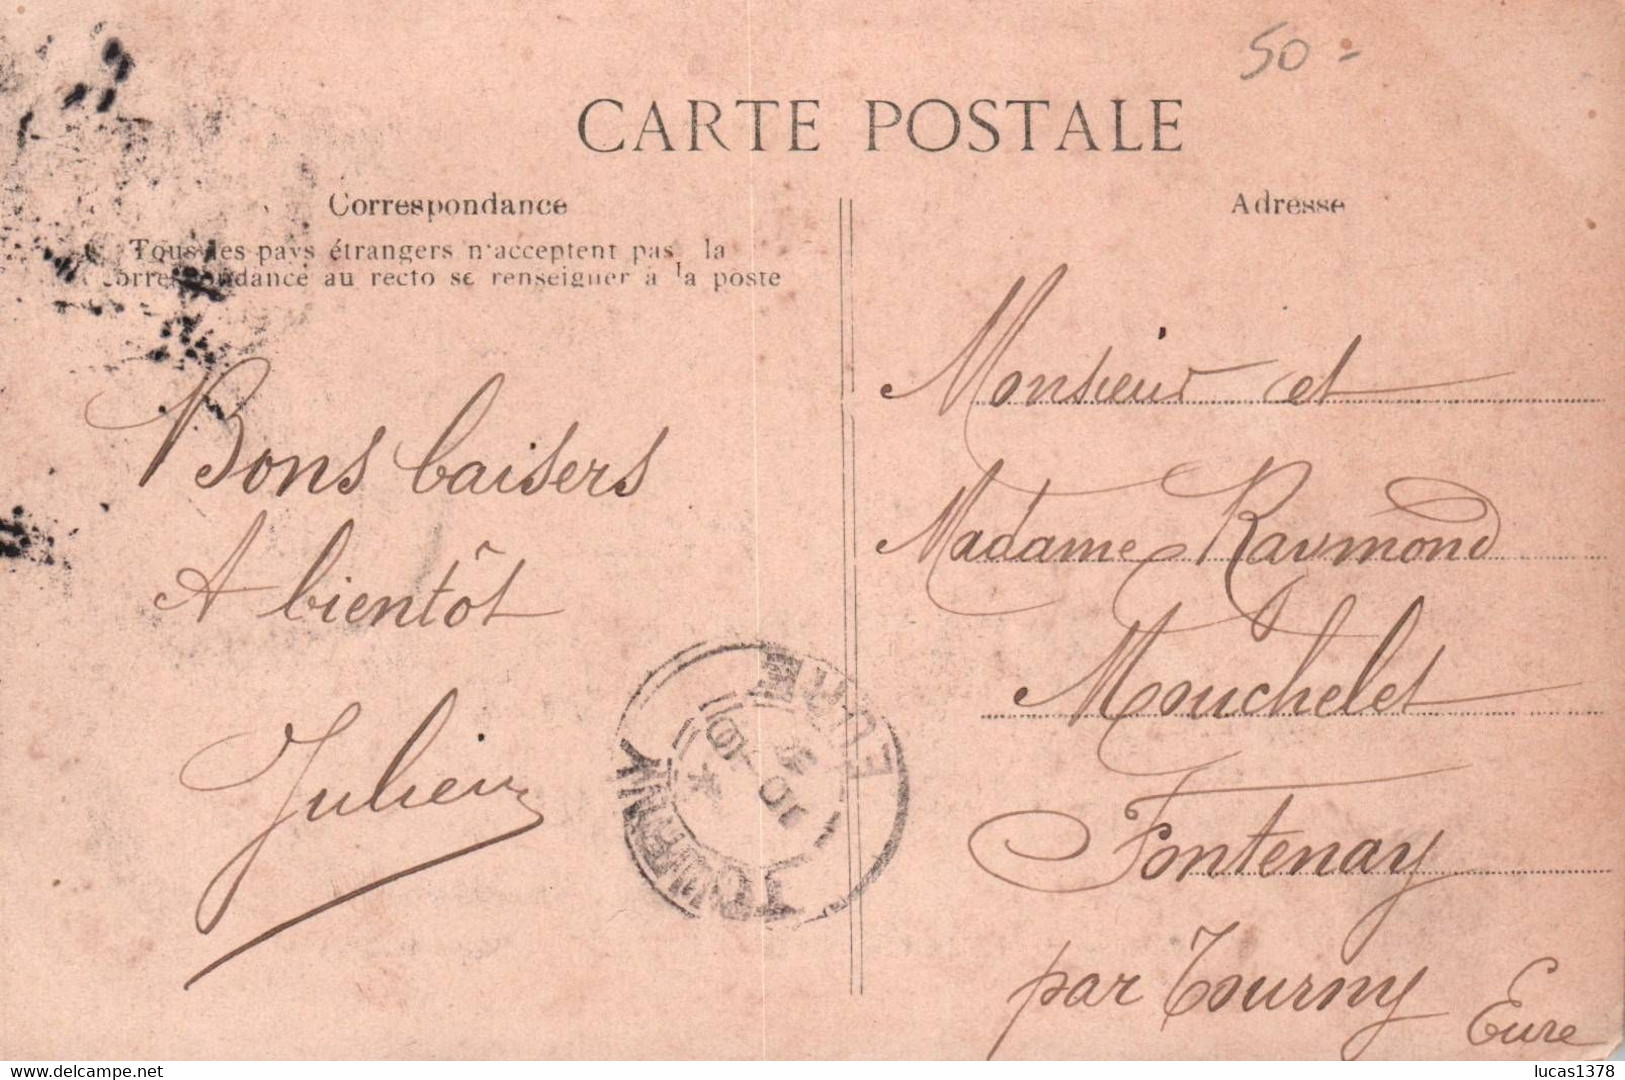 50 -
CARTE POSTALE
Correspondance
Tous les pays étrangers n'acceptent pas la
correspondance au recto se renseigner à la poste
Bons baisers
A bientôt
Julien
Adresse
Monsieur et
Madame Raymond
Mouchelet
Fontenay
par Tourny
Eure
EURE
delcampe.net
lucas1378